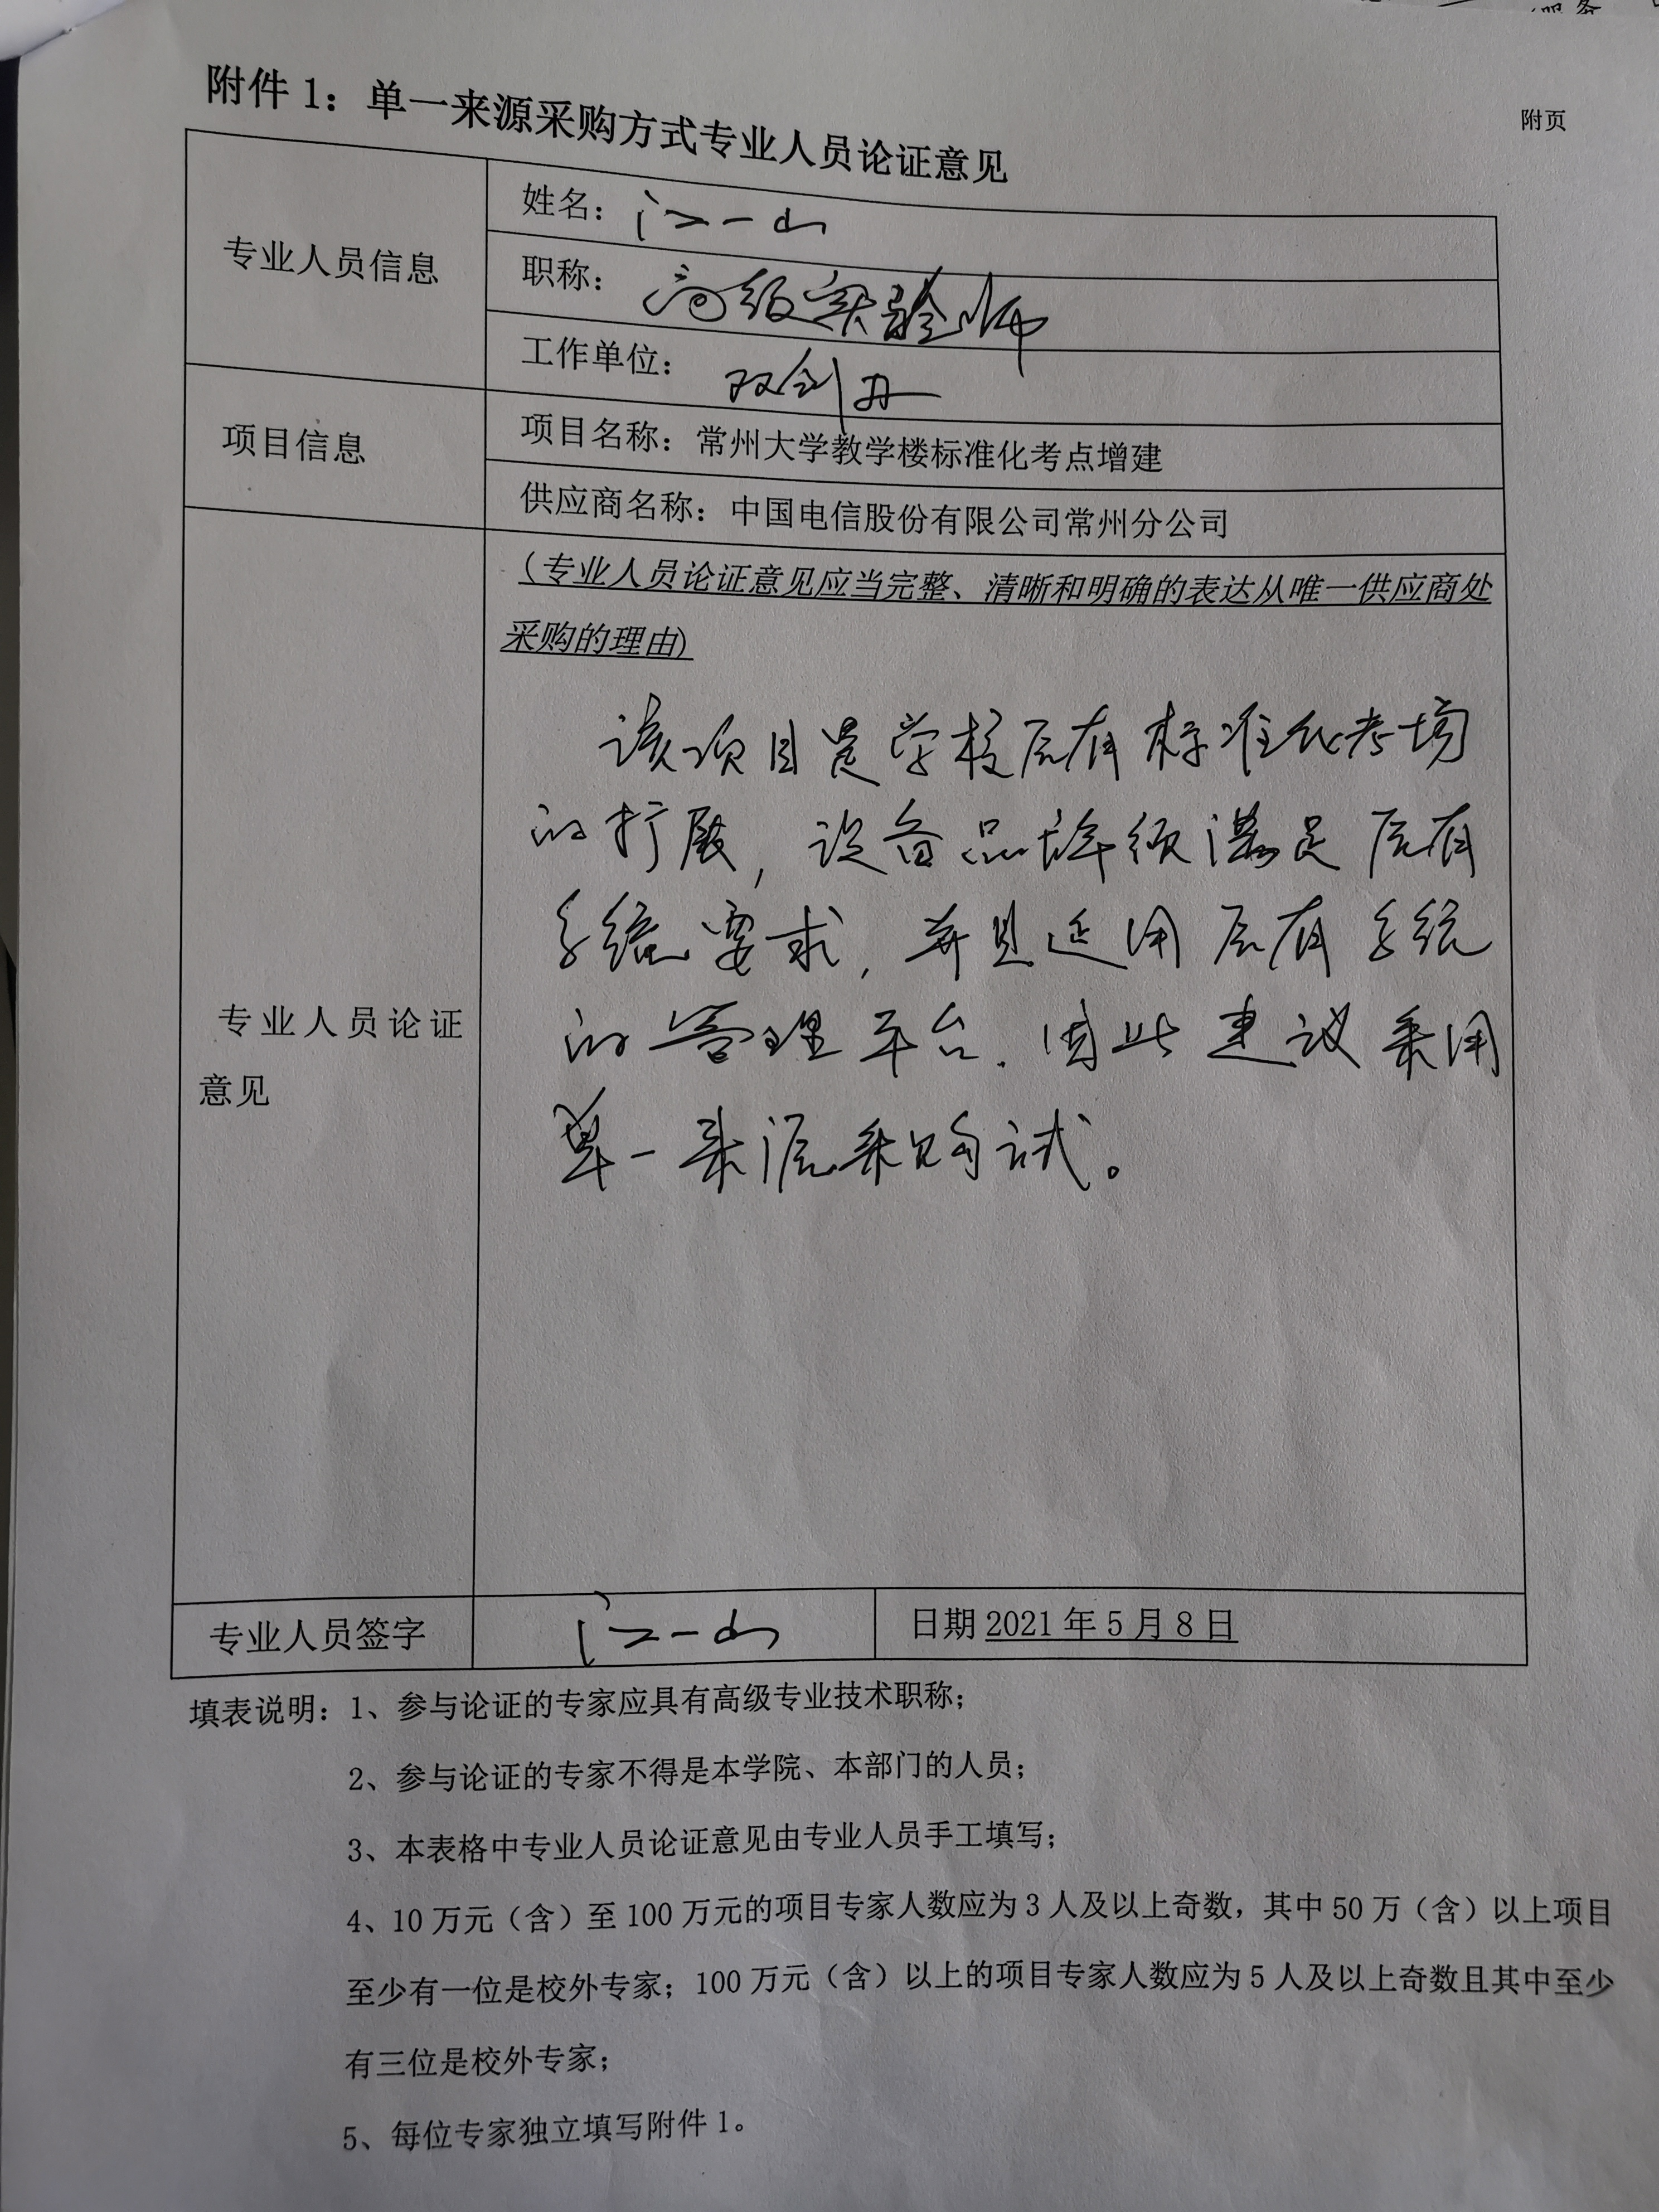 附页
附件 1：单一来源采购方式专业人员论证意见
专业人员信息
姓名：江一山
职称：高级实验师
工作单位：双创办
项目信息
项目名称：常州大学教学楼标准化考点增建
供应商名称：中国电信股份有限公司常州分公司
专业人员论证
意见
（专业人员论证意见应当完整、清晰和明确的表达从唯一供应商处
采购的理由)
该项目是学校原有标准化考场
的扩展，设备品牌须满足原有
系统要求，并且延用原有系统
的管理平台．因此建议采用
单一来源采购试。
专业人员签字
江一山
日期 2021 年 5 月 8 日
填表说明：1、参与论证的专家应具有高级专业技术职称；
2、参与论证的专家不得是本学院、本部门的人员；
3、本表格中专业人员论证意见由专业人员手工填写；
4、10 万元（含）至 100 万元的项目专家人数应为 3 人及以上奇数，其中 50 万（含）以上项目
至少有一位是校外专家；100 万元（含）以上的项目专家人数应为 5 人及以上奇数且其中至少
有三位是校外专家；
5、每位专家独立填写附件 1。